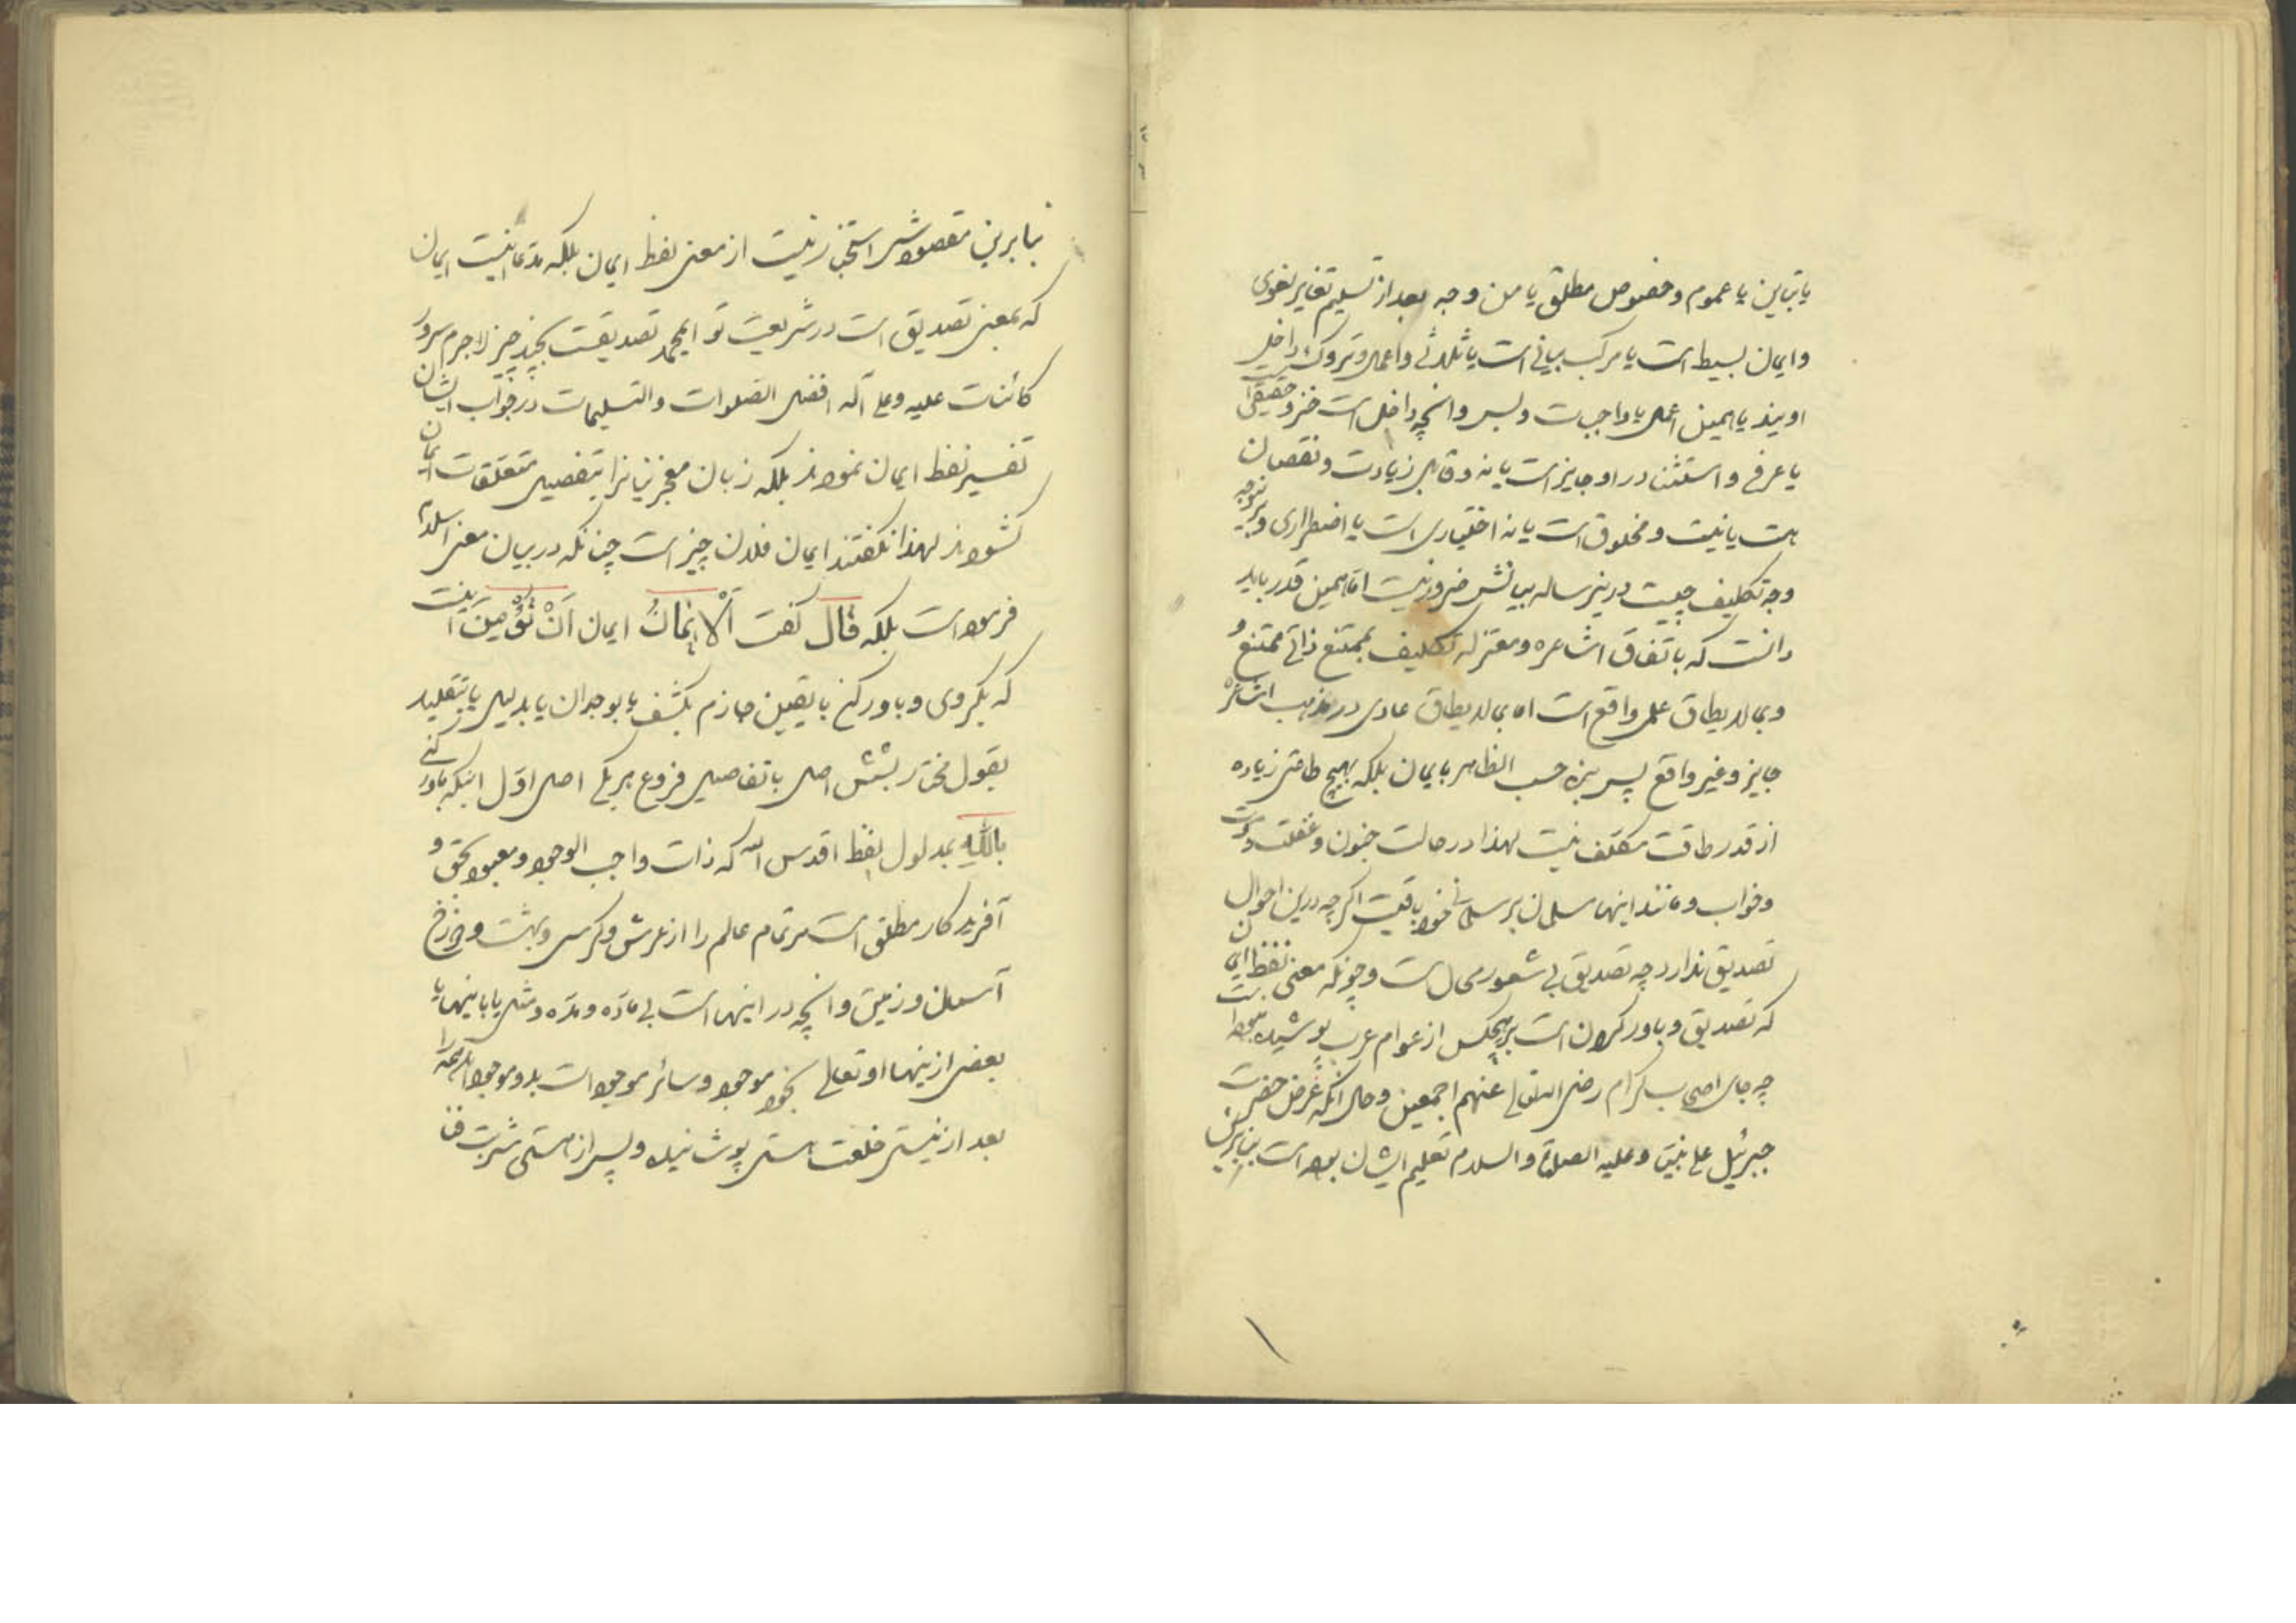 یا تباین یا عموم و خصوص مطلق یا من وجه بعد از تسلیم تغایر لغوی
و ایمان بسیط است یا مرکب بیانی است یا ثلاثی و اعمال و تروک داخل
اویند یا همین اعمال یا واجبات و بس و انچه داخل است جزو حقیقی است
یا عرفی و استثنا در او جایز است یا نه و قابل زیادت و نقصان
هست یا نیست و مخلوق است یا نه اختیاری است یا اضطراری و بر هر وجه
وجه تکلیف چیست درین رساله بیانش ضرور نیست اما همین قدر باید
دانست که باتفاق اشاعره و معتزله تکلیف بممتنع ذاتی ممتنع و
و بمالایطاق علمی واقع است اما بمالایطاق عادی در مذهب اشاعره
جایز و غیر واقع پس بنده حسب الظاهر بایمان بلکه بهیچ طاعتی زیاده
از قدر طاقت مکلف نیست لهذا در حالت جنون و غفلت و موت
و خواب و مانند اینها مسلمان بر مسلمانی خود باقیست اگرچه درین احوال
تصدیق ندارد چه تصدیق بی شعور محال است و چونکه معنی لفظ ایمان
که تصدیق و باور کردن است بر هیچکس از عوام عرب پوشیده نبوده است
چه جای اصحاب کرام رضی الله تعالی عنهم اجمعین و حال آنکه غرض حضرت
جبرئیل علی نبینا و علیه الصلوة و السلام تعلیم ایشان بوده است بنابرین
بنابرین مقصودش استخبار نیست از معنی لفظ ایمان بلکه مدعا اینست ایمان
که بمعنی تصدیق است در شریعت تو ای محمد تصدیقست بچند چیز لاجرم سرور
کائنات علیه و علی آله افضل الصلوات و التسلیمات در جواب ایشان
تفسیر لفظ ایمان نمودند بلکه زبان معجز بیانرا بتفصیل متعلقات ایمان
گشودند لهذا نگفتند ایمان فلان چیز است چنانکه در بیان معنی اسلام
فرموده است بلکه قال گفت اَلْاِیْمَانُ ایمان اَنْ تُؤْمِنَ اینست
که بگروی و باور کنی بایقین جازم بکشف یا بوجدان یا بدلیل یا بتقلید
بقول مختار بشش اصل با تفاصیل فروع هر یکی اصل اول اینکه باور کنی
بِاللهِ بمدلول لفظ اقدس الله که ذات واجب الوجود و معبود بحق و
آفریدکار مطلق است مر تمام عالم را از عرش و کرسی و بهشت و دوزخ
آسمان و زمین و انچه در اینهاست بی ماده و مده و مثال یا باینها یا
بعضی ازینها او تعالی بخود موجود و سائر موجودات بدو موجودند همه را
بعد از نیستی خلعت هستی پوشانیده و پس از هستی شربت فنا